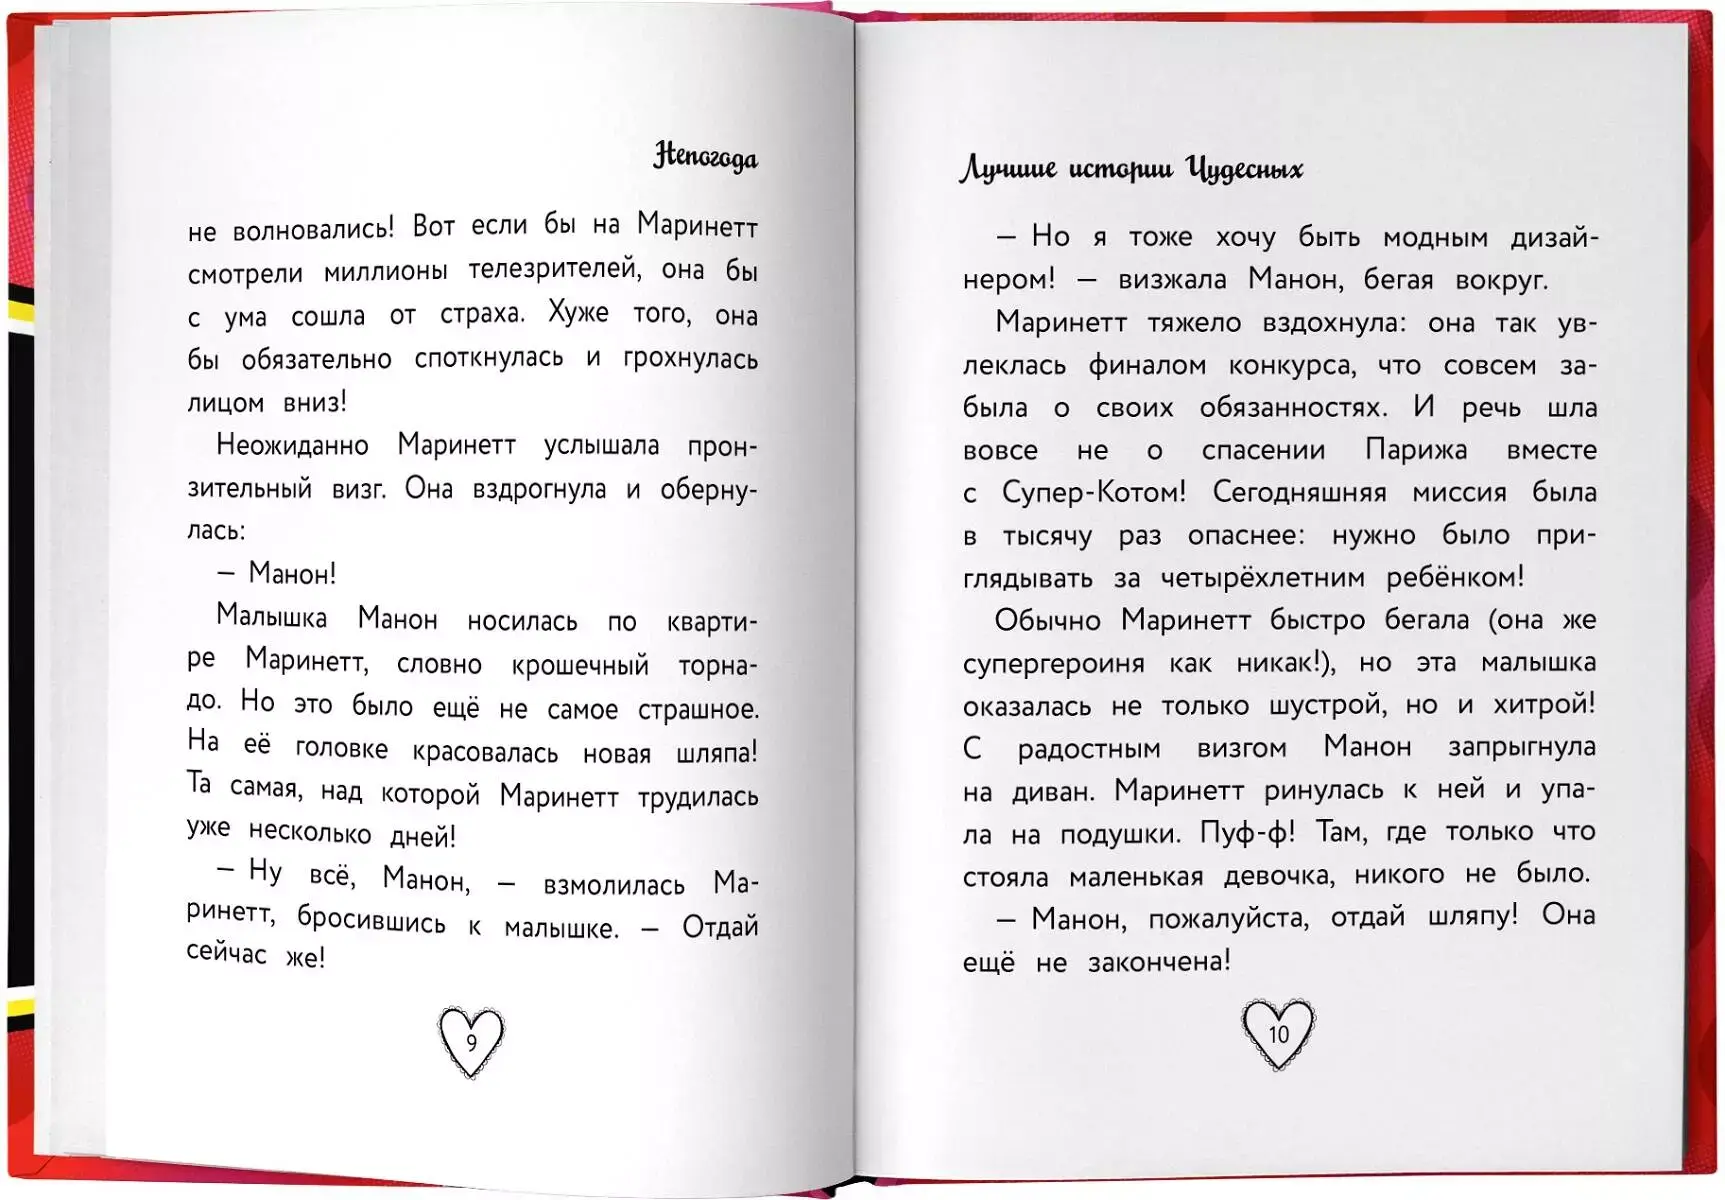 Непогода
не волновались! Вот если бы на Маринетт
смотрели миллионы телезрителей, она бы
с ума сошла от страха. Хуже того, она
бы обязательно споткнулась и грохнулась
лицом вниз!
Неожиданно Маринетт услышала прон-
зительный визг. Она вздрогнула и оберну-
лась:
— Манон!
Малышка Манон носилась по кварти-
ре Маринетт, словно крошечный торна-
до. Но это было ещё не самое страшное.
На её головке красовалась новая шляпа!
Та самая, над которой Маринетт трудилась
уже несколько дней!
— Ну всё, Манон, — взмолилась Ма-
ринетт, бросившись к малышке. — Отдай
сейчас же!
9
Лучшие истории Чудесных
— Но я тоже хочу быть модным дизай-
нером! — визжала Манон, бегая вокруг.
Маринетт тяжело вздохнула: она так ув-
леклась финалом конкурса, что совсем за-
была о своих обязанностях. И речь шла
вовсе не о спасении Парижа вместе
с Супер-Котом! Сегодняшняя миссия была
в тысячу раз опаснее: нужно было при-
глядывать за четырёхлетним ребёнком!
Обычно Маринетт быстро бегала (она же
супергероиня как никак!), но эта малышка
оказалась не только шустрой, но и хитрой!
С радостным визгом Манон запрыгнула
на диван. Маринетт ринулась к ней и упа-
ла на подушки. Пуф-ф! Там, где только что
стояла маленькая девочка, никого не было.
— Манон, пожалуйста, отдай шляпу! Она
ещё не закончена!
10